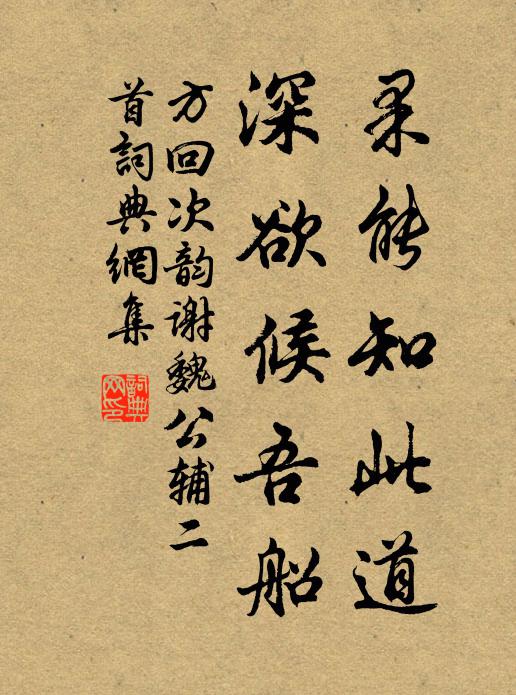 果能知此道
深欲候吾船
方回次韵謝魏公辅二
首詞典網集
詞典
网印